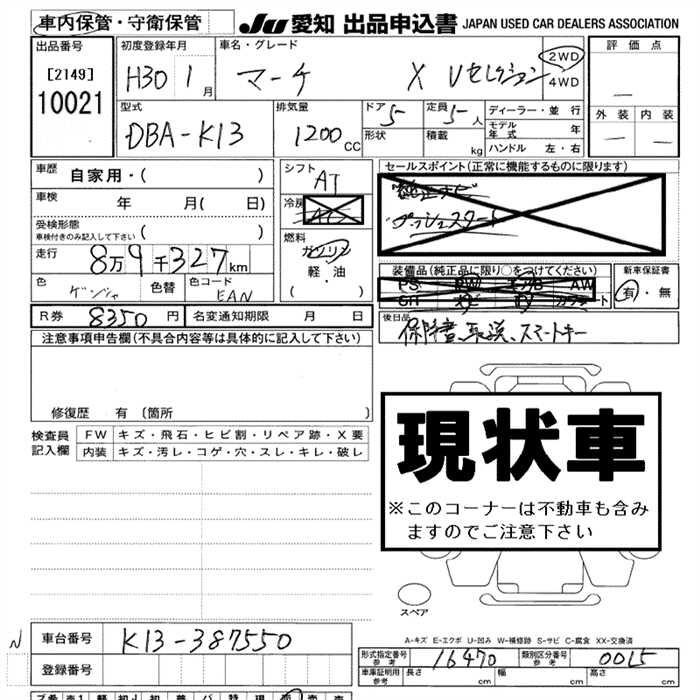 車内保管・守衛保管
JU 愛知 出品申込書 JAPAN USED CAR DEALERS ASSOCIATION
出品番号
[2149]
10021
初度登録年月
H30 1月
車名・グレード
マーチ X Vセレクション
2WD
4WD
評価点
—
外装 内装
— —
型式
DBA-K13
排気量
1200CC
ドア
5
形状
定員
5人
積載 kg
ディーラー・並行
モデル年式 年
ハンドル 左・右
車歴 自家用・( )
車検 年 月( 日)
受検形態
車検付きのみ記入して下さい ( )
走行 8万9千327km
色 色替 色コード
EAN
シフト
AT
冷房
燃料
ガソリン
軽・油
( )
セールスポイント(正常に機能するものに限ります)
純正ナビ
プッシュスタート
装備品(純正品に限り○をつけてください)
PS PW AW
新車保証書
有・無
R券 8350円 名変通知期限 月 日
後日品
保証書、取説、スマートキー
注意事項申告欄(不具合内容等は具体的に記入して下さい)
修復歴 有 〔箇所 〕
検査員記入欄
FW キズ・飛石・ヒビ割・リペア跡・X要
内装 キズ・汚レ・コゲ・穴・スレ・キレ・破レ
現状車
※このコーナーは不動車も含み
ますのでご注意下さい
スペア
A-キズ E-エクボ U-凹み W-補修跡 S-サビ C-腐食 XX-交換済
N
車台番号 K13-387550
登録番号
形式指定番号 参考 16470
類別区分番号 参考 0015
車庫証明用 参考 長さ 幅 高さ